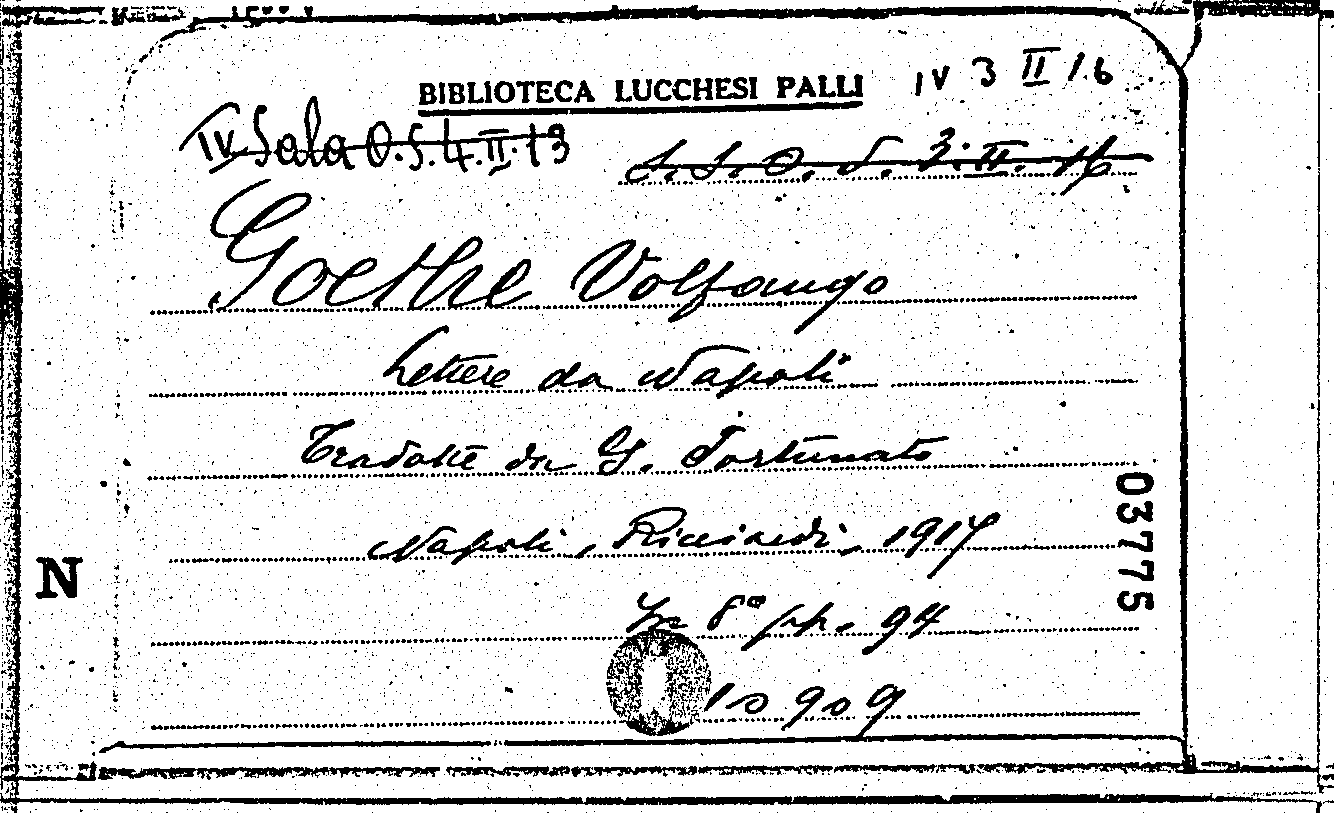 BIBLIOTECA LUCCHESI PALLI IV 3 II 16
IV Sala O.S. 4.II.13
S. S. O. S. 3.II. 16
Goethe Volfango
Lettere da Napoli
Tradotte da G. Fortunato
Napoli, Ricciardi, 1917
In 8° pp. 94
10909
03775
N